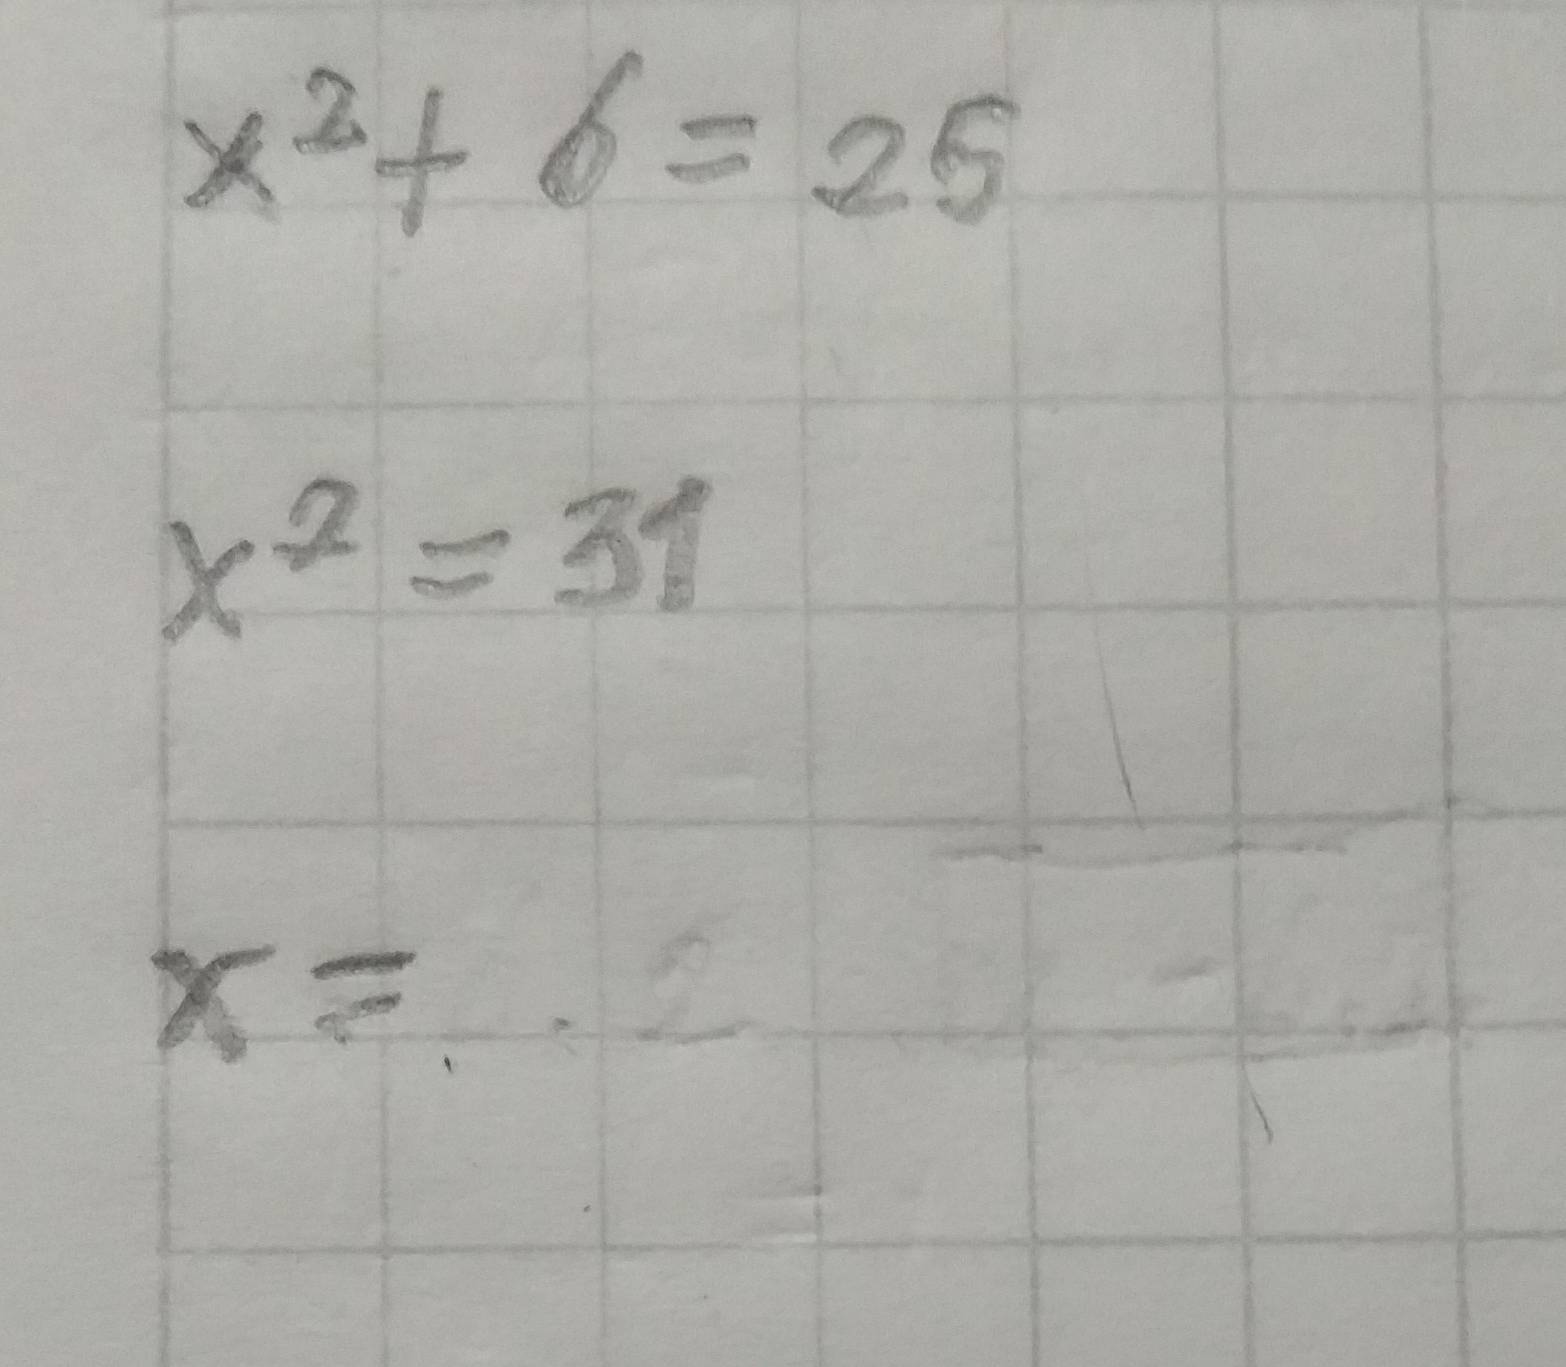 x² + 6 = 25
x² = 31
x =